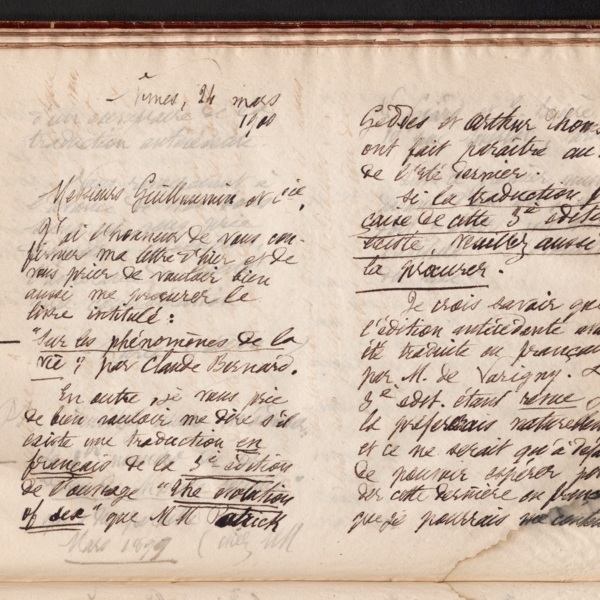 Nimes, 24 mars
1900
Messieurs Guillaumin et Cie,
J'ai l'honneur de vous con-
firmer ma lettre d'hier et de
vous prier de vouloir bien
aussi me procurer le
livre intitulé :
"Sur les phénomènes de la
vie" par Claude Bernard.
En outre, je vous prie
de bien vouloir me dire s'il
existe une traduction en
français de la 3e édition
de l'ouvrage "The evolution
of sex" que MM Patrick
Mars 1899
Geddes et Arthur Thom
ont fait paraître au
de l'été dernier.
Si la traduction
çaise de cette 3e édit
existe, veuillez aussi
la procurer.
Je crois savoir que
l'édition antécédente a
été traduite en françai
par M. de Varigny.
3e édit. étant
la préférerais naturellem
et ce ne serait qu'à déf
de pouvoir espérer
der cette dernière en fran
que je pourrais me conten